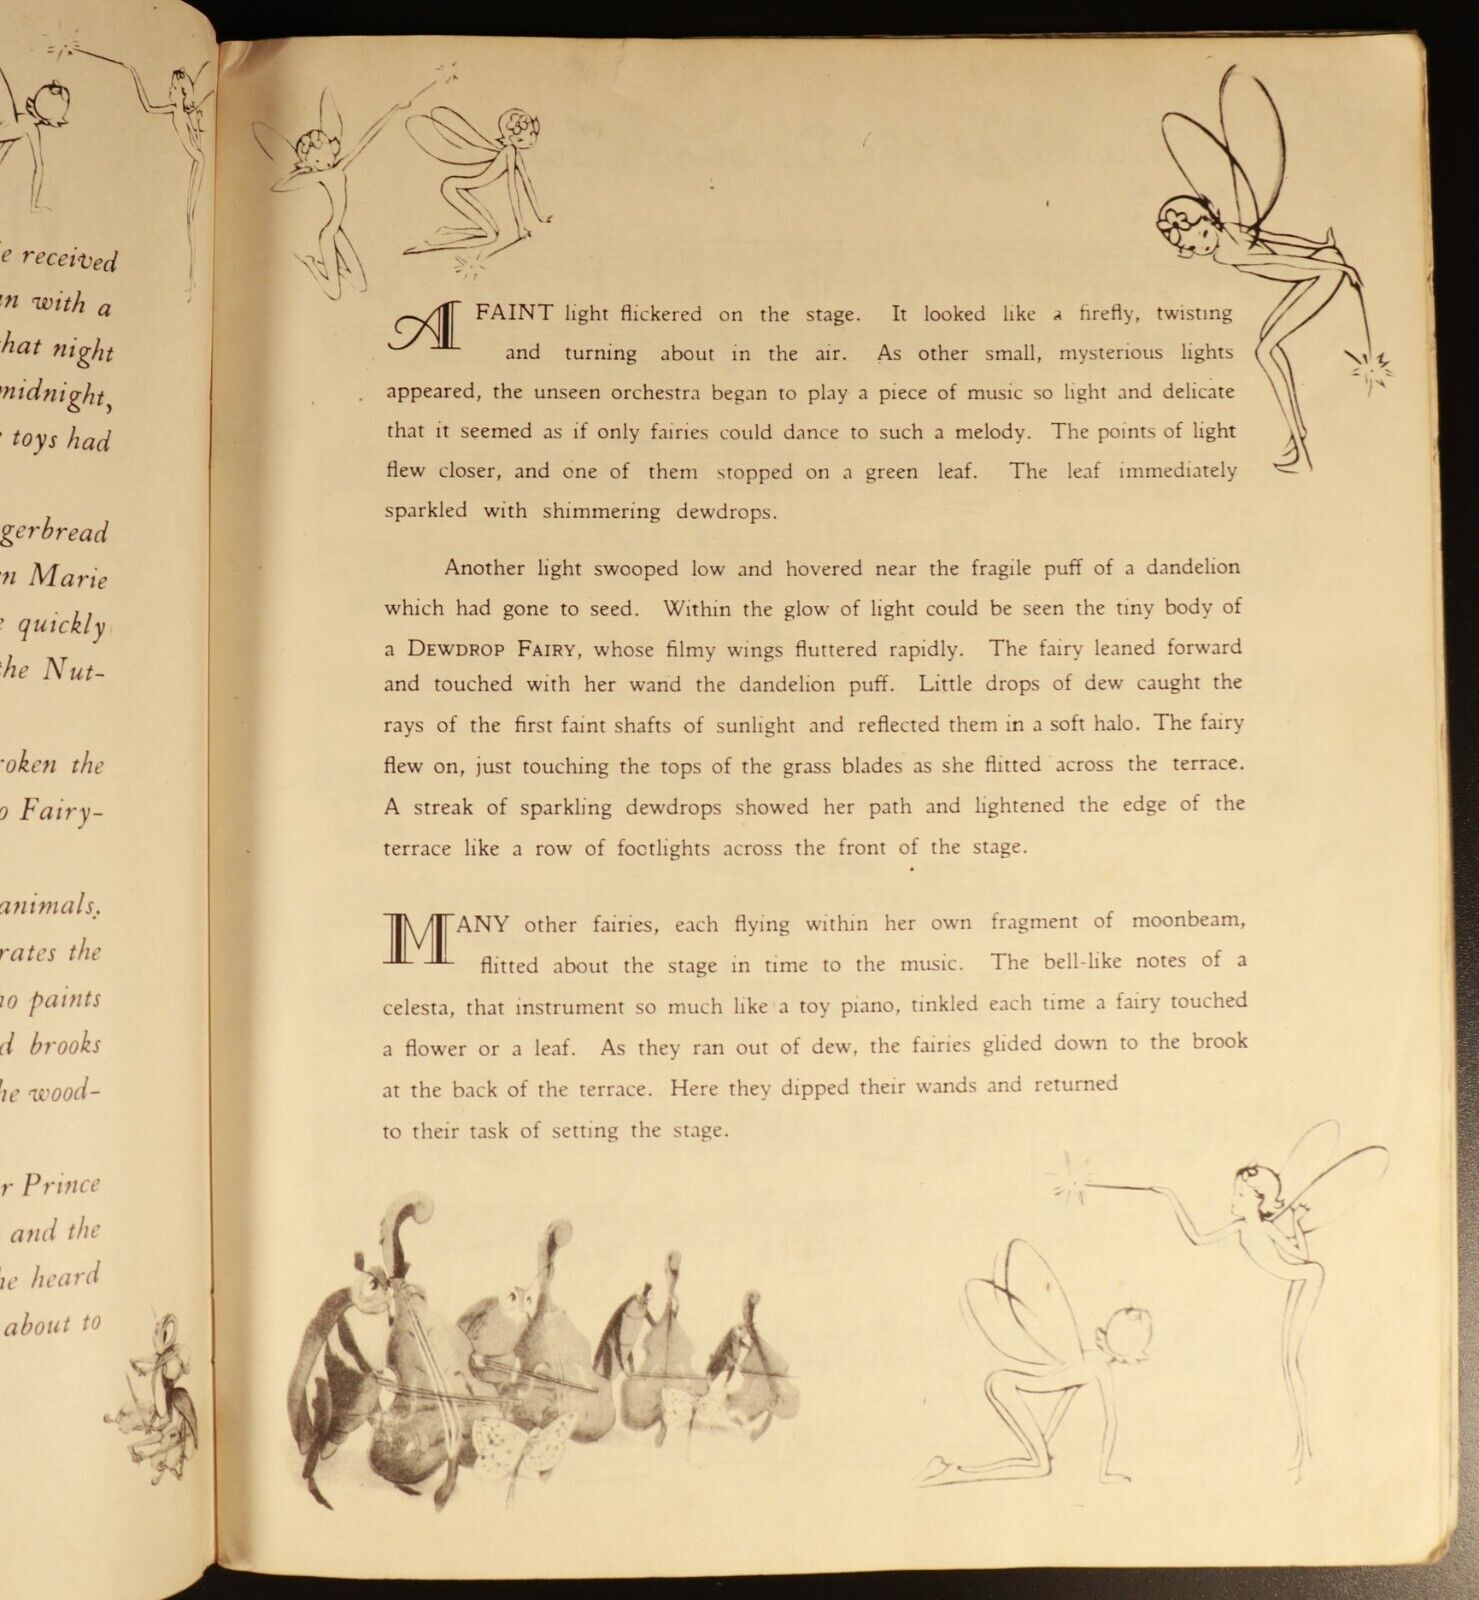 e received
n with a
hat night
midnight,
toys had
gerbread
n Marie
quickly
the Nut-
roken the
o Fairy-
animals.
rates the
ho paints
d brooks
he wood-
r Prince
and the
he heard
about to
A FAINT light flickered on the stage. It looked like a firefly, twisting
and turning about in the air. As other small, mysterious lights
appeared, the unseen orchestra began to play a piece of music so light and delicate
that it seemed as if only fairies could dance to such a melody. The points of light
flew closer, and one of them stopped on a green leaf. The leaf immediately
sparkled with shimmering dewdrops.
Another light swooped low and hovered near the fragile puff of a dandelion
which had gone to seed. Within the glow of light could be seen the tiny body of
a DEWDROP FAIRY, whose filmy wings fluttered rapidly. The fairy leaned forward
and touched with her wand the dandelion puff. Little drops of dew caught the
rays of the first faint shafts of sunlight and reflected them in a soft halo. The fairy
flew on, just touching the tops of the grass blades as she flitted across the terrace.
A streak of sparkling dewdrops showed her path and lightened the edge of the
terrace like a row of footlights across the front of the stage.
MANY other fairies, each flying within her own fragment of moonbeam,
flitted about the stage in time to the music. The bell-like notes of a
celesta, that instrument so much like a toy piano, tinkled each time a fairy touched
a flower or a leaf. As they ran out of dew, the fairies glided down to the brook
at the back of the terrace. Here they dipped their wands and returned
to their task of setting the stage.